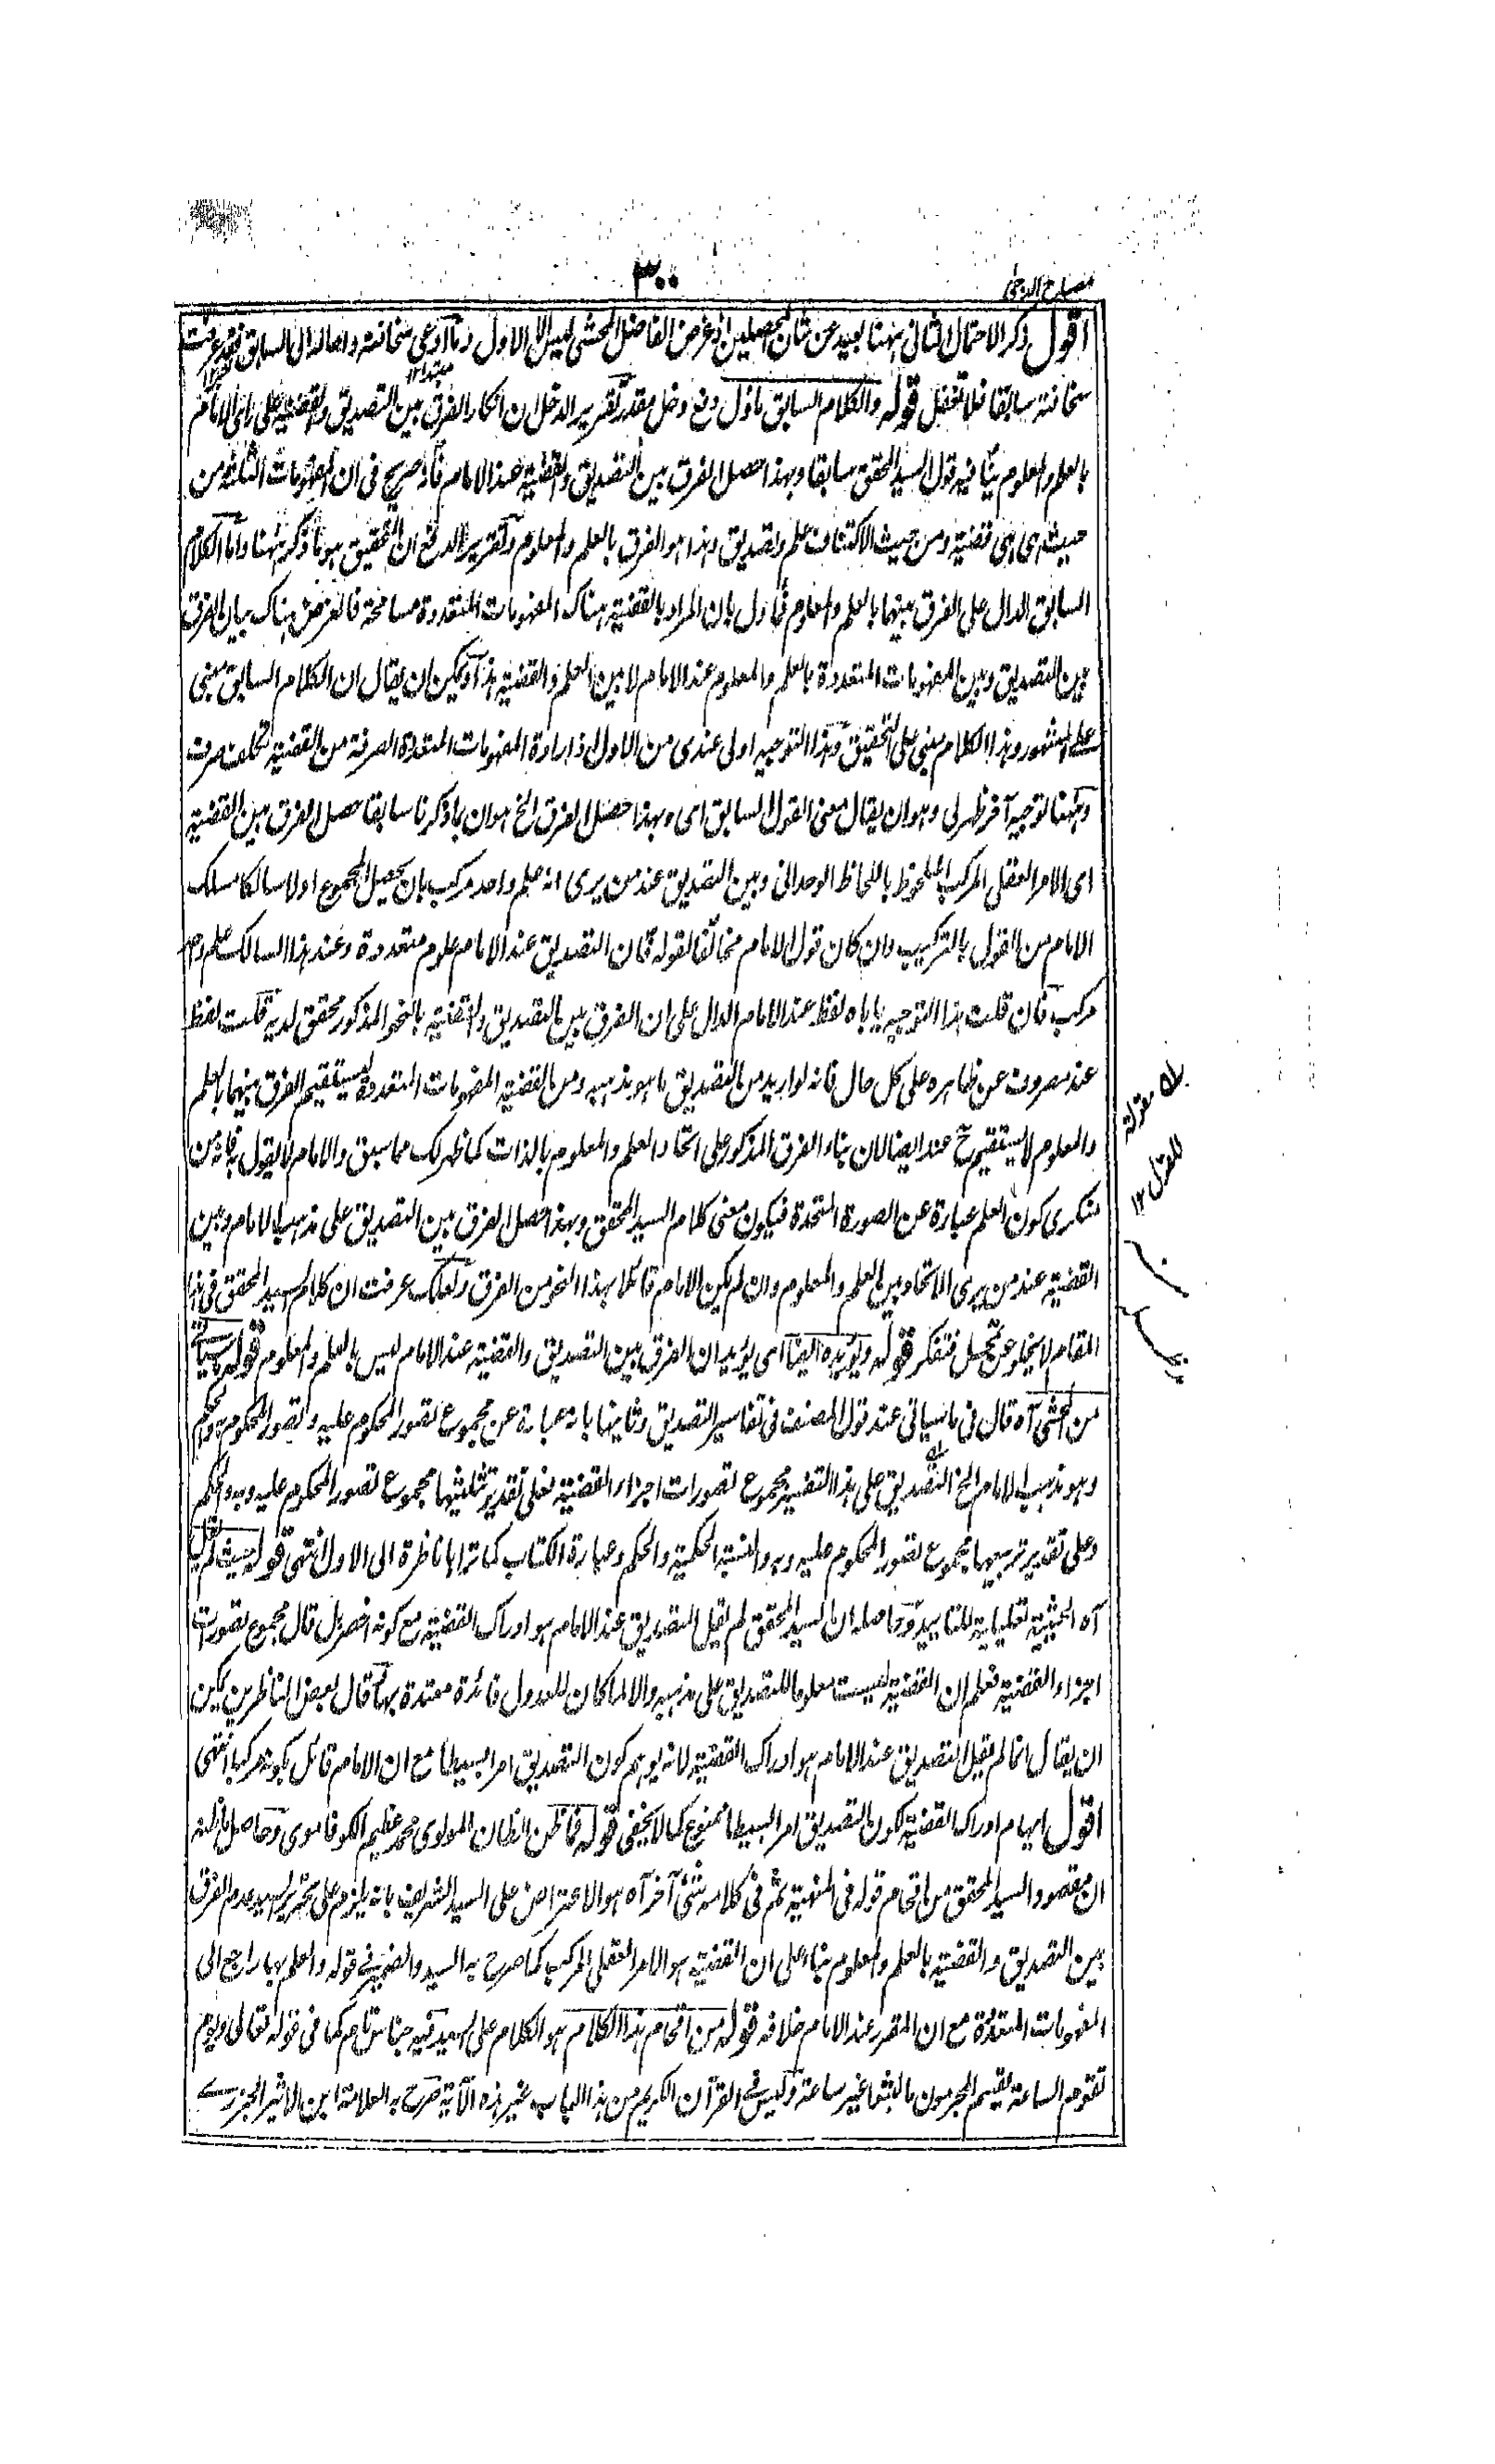 مصباح الدجى
٣٠٠
اقول ذكر الاحتمال الثانى ههنا بعيد عن شان المحصلين اذ غرض الفاضل المحشى ليس الا الاول وما ادعى سخافته واحاله الى السابق فقد عرفت
سخافته سابقا فلا تغفل قوله والكلام السابق ماؤل دفع دخل مقدر تقرير الدخل ان انكار الفرق بين التصديق والقضية على راى الامام
بالعلم والمعلوم ينافيه قول السيد المحقق سابقا وبهذا حصل الفرق بين التصديق والقضية عند الامام فانه صريح فى ان المفهومات الثلثة من
حيث هى هى قضية ومن حيث الاكتناف علم وتصديق وهذا هو الفرق بالعلم والمعلوم وتقرير الدفع ان التحقيق هو ما ذكر ههنا واما الكلام
السابق الدال على الفرق بينهما بالعلم والمعلوم فمأول بان المراد بالقضية هناك المفهومات المتعددة مسامحة فالغرض هناك بيان الفرق
بين التصديق وبين المفهومات المتعددة بالعلم والمعلوم عند الامام لا بين العلم والقضية هذا ويمكن ان يقال ان الكلام السابق مبنى
على المشهور وهذا الكلام مبنى على التحقيق وهذا التوجيه اولى عندى من الاول اذ ارادة المفهومات المتعددة الصرفة من القضية تكلف صرف
وههنا توجيه آخر ظهر لى وهو ان يقال معنى القول السابق اى وبهذا حصل الفرق الخ هو ان بما ذكرنا سابقا حصل الفرق بين القضية
اى الامر العقلى المركب الملحوظ باللحاظ الوحدانى وبين التصديق عند من يرى انه علم واحد مركب بان يحصل المجموع اولا سالكا مسلك
الامام من القول بالتركيب وان كان قول الامام مخالفا لقوله فان التصديق عند الامام علوم متعددة وعند هذا السالك علم واحد
مركب فان قلت هذا التوجيه ياباه لفظ عند الامام الدال على ان الفرق بين التصديق والقضية بالنحو المذكور محقق لديه قلت لفظ
عند مصروف عن ظاهره على كل حال فانه لو اريد من التصديق ما هو مذهبه ومن القضية المفهومات المتعددة ليستقيم الفرق بينهما بالعلم
والمعلوم لا يستقيم ح عند ايضا لان بناء الفرق المذكور على اتحاد العلم والمعلوم بالذات كما ظهر لك مما سبق والامام لا يقول به فانه من
منكرى كون العلم عبارة عن الصورة المتحدة فيكون معنى كلام السيد المحقق وبهذا حصل الفرق بين التصديق على مذهب الامام وبين
القضية عند من يرى الاتحاد بين العلم والمعلوم وان لم يكن الامام قائلا بهذا النحو من الفرق ولعلك عرفت ان كلام السيد المحقق فى هذا
المقام لا يخلو عن تمحل فتفكر قوله ويؤيده ايضا اى يؤيد ان الفرق بين التصديق والقضية عند الامام ليس بالعلم والمعلوم قوله ما سياتى
من المحشى آه قال فى ما سياتى عند قول المصنف فى تفاسير التصديق وثانيها بانه عبارة عن مجموع تصور المحكوم عليه وتصور المحكوم به والحكم
وهو مذهب الامام الخ التصديق على هذا التفسير مجموع تصورات اجزاء القضية فعلى تقدير تثليثها مجموع تصور المحكوم عليه وبه والحكم
وعلى تقدير تربيعها مجموع تصور المحكوم عليه وبه والنسبة الحكمية والحكم وعبارة الكتاب كما تراها ناظرة الى الاول انتهى قوله حيث لم يقل
آه الحيثية تعليلية للتاييد وحاصله ان السيد المحقق لم يقل التصديق عند الامام هو ادراك القضية مع كونه اخصر بل قال مجموع تصورات
اجزاء القضية فعلم ان القضية ليست معلوما للتصديق على مذهبه والا لما كان للعدول فائدة معتدة بها قال بعض الناظرين يمكن
ان يقال انما لم يقل التصديق عند الامام هو ادراك القضية لانه يوهم كون التصديق امرا بسيطا مع ان الامام قائل بكونه مركبا انتهى
اقول ايهام ادراك القضية كون التصديق امرا بسيطا ممنوع كما لا يخفى قوله فما ظن الظان المولوى محمد عظيم الكوفاموى وحاصل ما ظنه
ان مقصود السيد المحقق من اقحام قوله فى المنهية ثم فى كلامه شئ آخر آه هو الاعتراض على السيد الشريف بانه يلزم على تحرير السيد عدم الفرق
بين التصديق والقضية بالعلم والمعلوم بناء على ان القضية هو الامر العقلى المركب كما صرح به السيد والضمير فى قوله والعلم بها راجع الى
المفهومات المتعددة مع ان المقرر عند الامام خلافه قوله من اقحام هذا الكلام هو الكلام على السيد فيه جناس تام كما فى قوله تعالى ويوم
تقوم الساعة يقسم المجرمون ما لبثوا غير ساعة وليس فى القرآن الكريم من هذا الباب غير هذه الآية صرح به العلامة ابن الاثير الجزرى